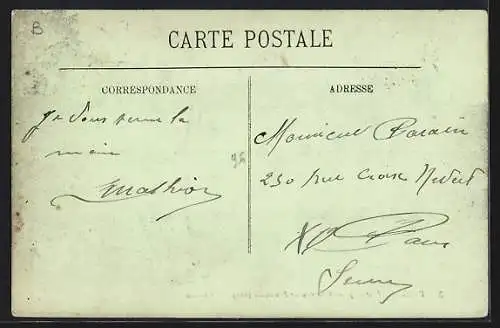 B
CARTE POSTALE
CORRESPONDANCE
ADRESSE
Je vous serre la
main
Mathior
Monsieur Parain
230 rue Croix Nivert
XV Paris
Seine